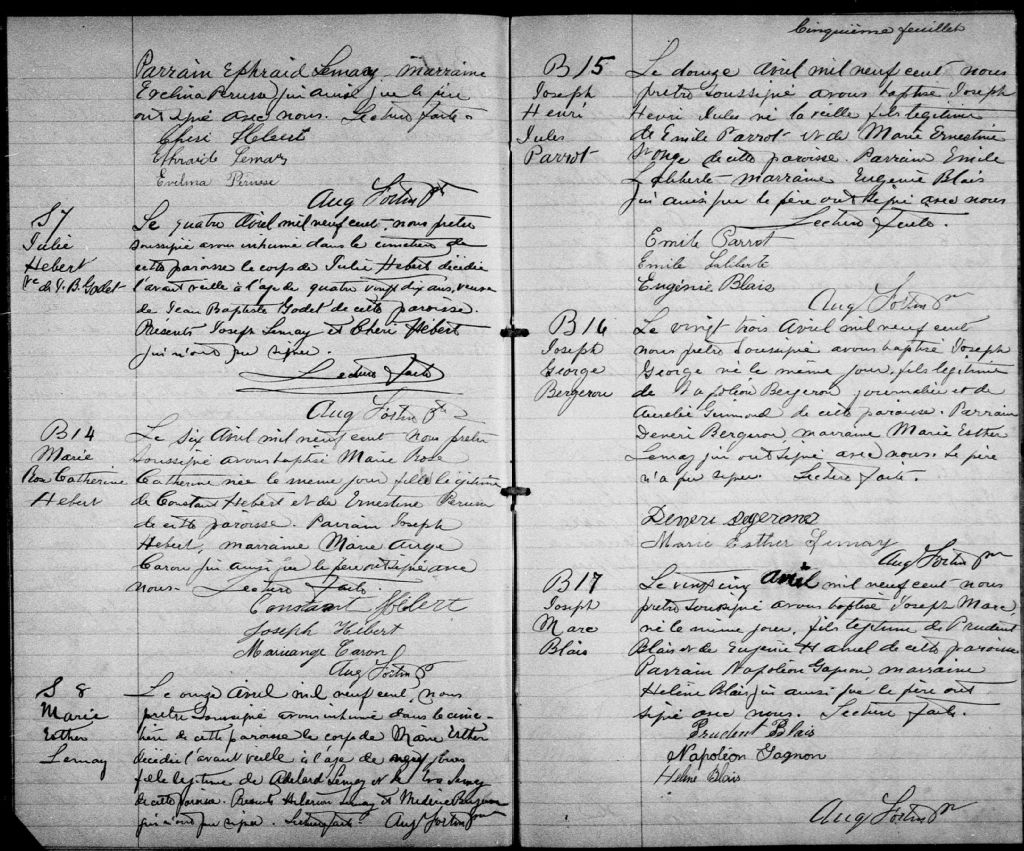 Parrain Ephraid Lemay, marraine
Evelina Perusse qui ainsi que le père
ont signé avec nous. Lecture faite.
Cheri Hebert
Ephraide Lemay
Evelina Perusse
Aug Fortin Ptr
S 7
Julie
Hebert
Ve de J. B. Godet
Le quatre Avril mil neuf cent, nous prêtre
soussigné avons inhumé dans le cimetière de
cette paroisse le corps de Julie Hebert décédée
l'avant veille à l'age de quatre vingt dix ans, veuve
de Jean Baptiste Godet de cette paroisse.
Presents Joseph Lemay et Cheri Hebert
qui n'ont pu signer.
Lecture faite
Aug Fortin Ptr
B 14
Marie
Rose Catherine
Hebert
Le six Avril mil neuf cent nous prêtre
soussigné avons baptisé Marie Rose
Catherine née le même jour fille légitime
de Constant Hebert et de Ernestine Perusse
de cette paroisse. Parrain Joseph
Hebert, marraine Marie Ange
Caron qui ainsi que le père ont signé avec
nous. Lecture faite.
Constant Hébert
Joseph Hébert
Marieange Caron
Aug Fortin P
S 8
Marie
Esther
Lemay
Le onze Avril mil neuf cent, nous
prêtre soussigné avons inhumé dans le cime-
tière de cette paroisse le corps de Marie Esther
décédée l'avant veille à l'age de neuf jours
fille légitime de Adelard Lemay et de Eva Lemay
de cette paroisse. Presents Hilarion Lemay et Médéric Bergeron
qui n'ont pu signer. Lecture faite. Aug Fortin Ptr
Cinquième feuillet
B 15
Joseph
Henri
Jules
Parrot
Le douze Avril mil neuf cent nous
prêtre soussigné avons baptisé Joseph
Henri Jules né la veille fils légitime
de Emile Parrot et de Marie Ernestine
St Onge de cette paroisse. Parrain Emile
Laliberte marraine Eugenie Blais
qui ainsi que le père ont signé avec nous
Lecture faite.
Emile Parrot
Emile Laliberte
Eugénie Blais
Aug Fortin Ptr
B 16
Joseph
George
Bergeron
Le vingt trois Avril mil neuf cent
nous prêtre soussigné avons baptisé Joseph
George né le même jour, fils légitime
de Napoléon Bergeron journalier et de
Aurelie Grimond de cette paroisse. Parrain
Deneri Bergeron, marraine Marie Esther
Lemay qui ont signé avec nous. Le père
n'a pu signer. Lecture faite.
Deneri Bergeron
Marie Esther Lemay
Aug Fortin Ptr
B 17
Joseph
Marc
Blais
Le vingt cinq Avril mil neuf cent nous
prêtre soussigné avons baptisé Joseph Marc
né le même jour, fils légitime de Prudent
Blais et de Eugenie Hamel de cette paroisse
Parrain Napoléon Gagnon, marraine
Helène Blais qui ainsi que le père ont
signé avec nous. Lecture faite.
Prudent Blais
Napoléon Gagnon
Helène Blais
Aug Fortin Ptr